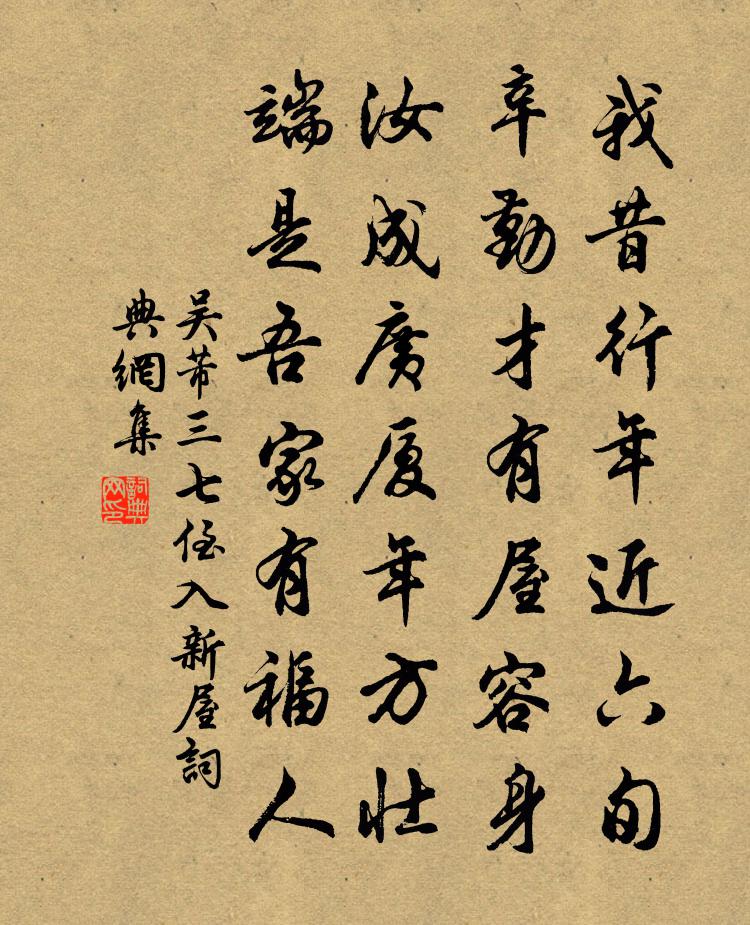 我昔行年近六旬
辛勤才有屋容身
汝成廣厦年方壮
端是吾家有福人
吴芾三七侄入新屋詞
典網集
詞典网印